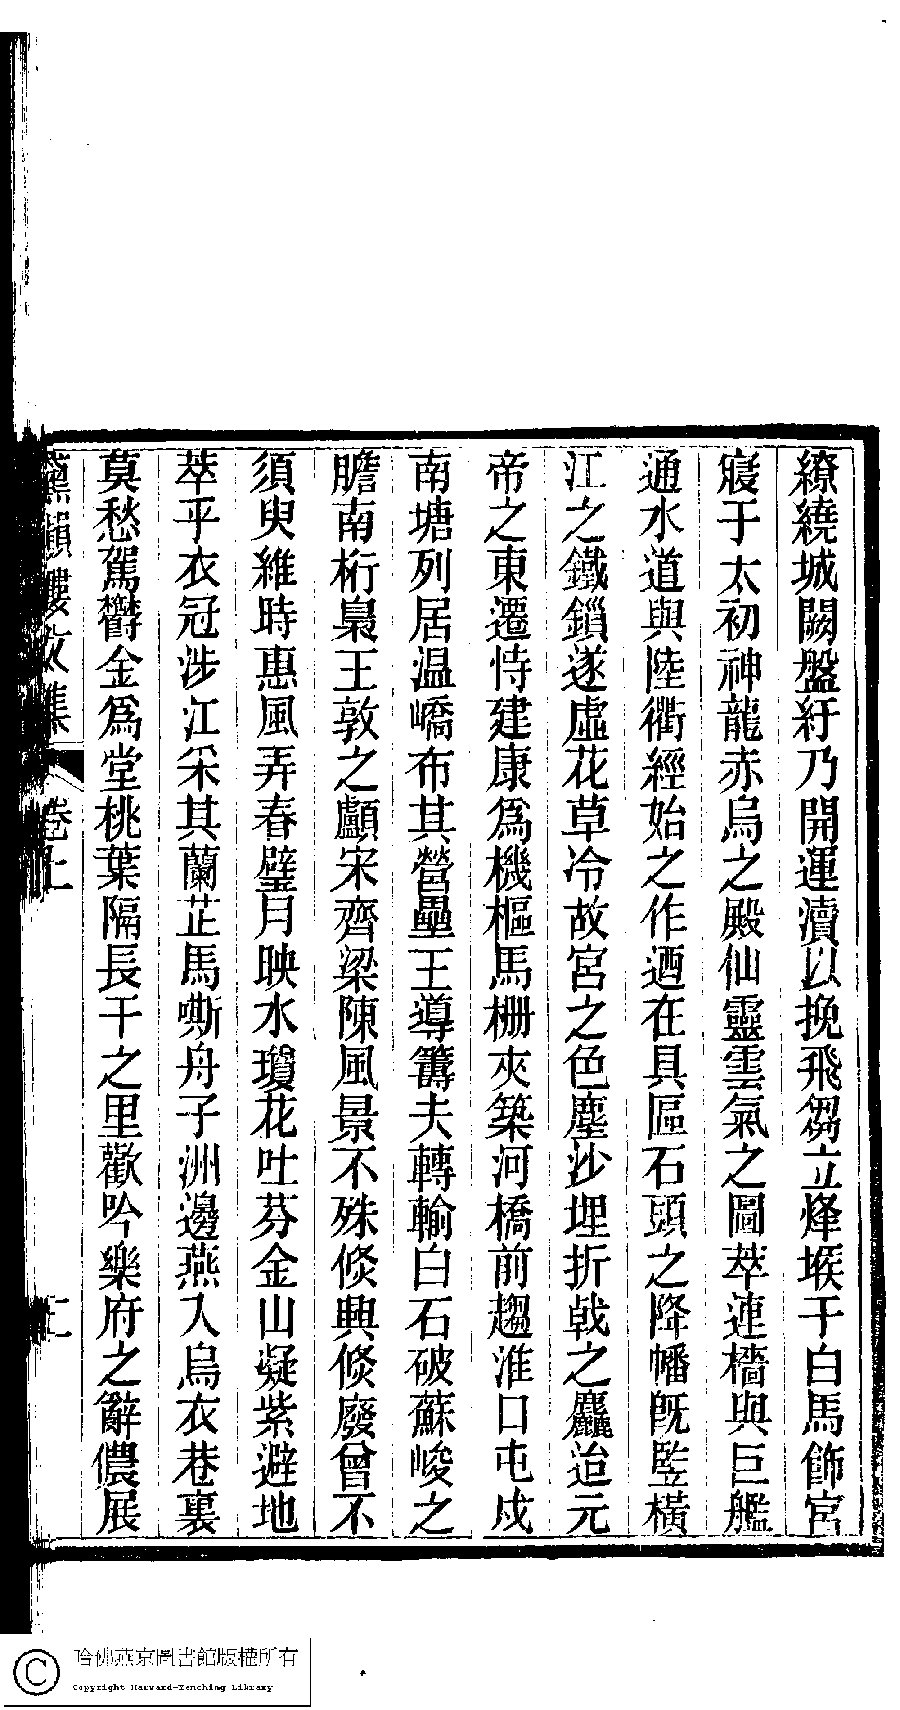 繚繞城闕盤紆乃開運瀆以挽飛芻立烽堠于白馬飾宮
寢于太初神龍赤烏之殿仙靈雲氣之圖萃連檣與巨艦
通水道與陸衢經始之作迺在具區石頭之降幡既豎橫
江之鐵鎖遂虛花草冷故宮之色塵沙埋折戟之麤迨元
帝之東遷恃建康爲機樞馬柵夾築河橋前趨淮口屯戍
南塘列居温嶠布其營壘王導籌夫轉輸白石破蘇峻之
膽南桁梟王敦之顱宋齊梁陳風景不殊倐興倐廢曾不
須臾維時惠風弄春璧月映水瓊花吐芬金山凝紫避地
萃乎衣冠涉江采其蘭芷馬嘶舟子洲邊燕入烏衣巷裏
莫愁駕鬱金爲堂桃葉隔長干之里歡吟樂府之辭儂展
文集 卷上
哈佛燕京圖書館版權所有
Copyright Harvard-Yenching Library